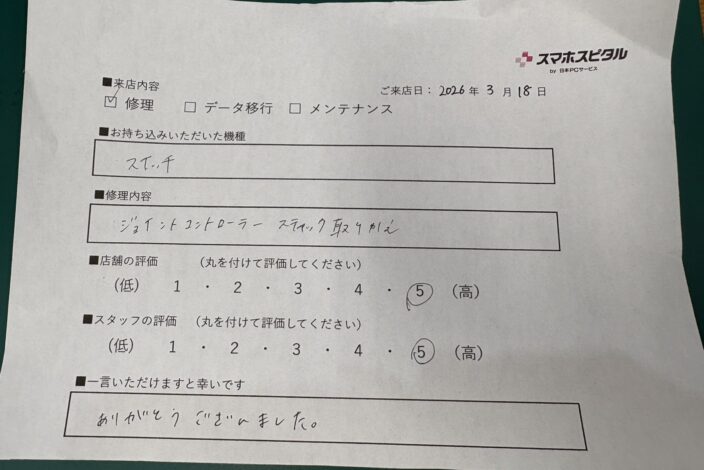 スマホスピタル
by 日本PCサービス
■来店内容
ご来店日： 2026 年 3 月 18 日
☑ 修理 □ データ移行 □ メンテナンス
■お持ち込みいただいた機種
スイッチ
■修理内容
ジョイントコントローラー スティック取りかえ
■店舗の評価 （丸を付けて評価してください）
（低） 1 ・ 2 ・ 3 ・ 4 ・ 5 （高）
■スタッフの評価 （丸を付けて評価してください）
（低） 1 ・ 2 ・ 3 ・ 4 ・ 5 （高）
■一言いただけますと幸いです
ありがとうございました。